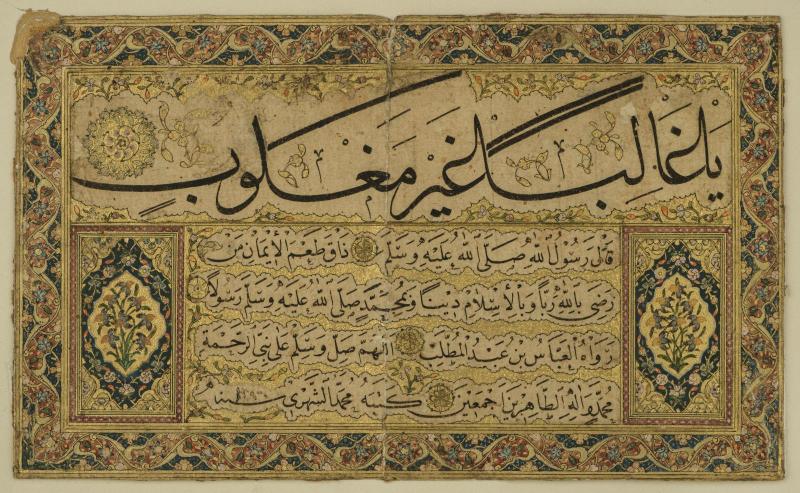 يا غالبا غير مغلوب
قال رسول الله صلى الله عليه وسلم ذاق طعم الإيمان من
رضي بالله ربا وبالأسلام دينا وبمحمد صلى الله عليه وسلم رسولا
رواه العباس بن عبد المطلب اللهم صل وسلم على نبي الرحمة
محمد وآله الطاهرين اجمعين كتبه محمد الشهري